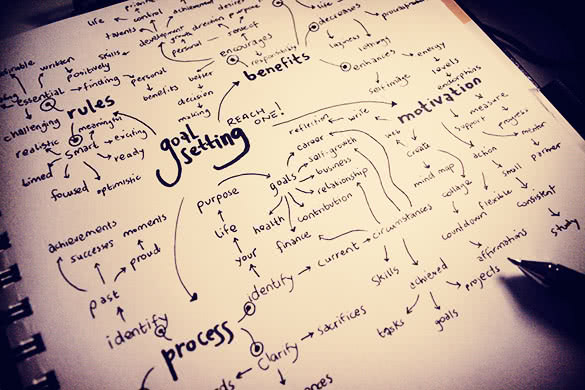 life
control
desired
talents
development
growth
direction
purpose
sense of
personal
encourages
responsibility
benefits
decreases
laziness
lethargy
enhances
self image
energy
levels
endorphins
motivation
measure
progress
mentor
support
web
create
mind map
action
collage
countdown
flexible
small
partner
consistent
study
affirmations
projects
written
positively
essential
finding
skills
personal
benefits
better
decision
making
rules
challenging
realistic
meaningful
smart
exciting
ready
timed
focused
optimistic
goal
setting
REACH
ONE!
reflection
write
career
self-growth
goals
business
relationship
contribution
health
finance
purpose
life
your
identify
current
circumstances
skills
achieved
tasks
goals
achievements
successes
moments
proud
past
identify
process
clarify
sacrifices